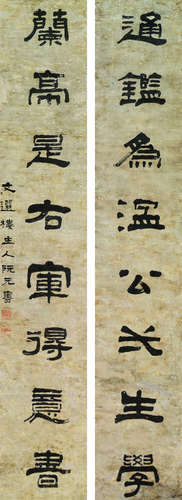 通鑑為溫公大生學
蘭亭是右軍得意書
文選樓主人阮元書